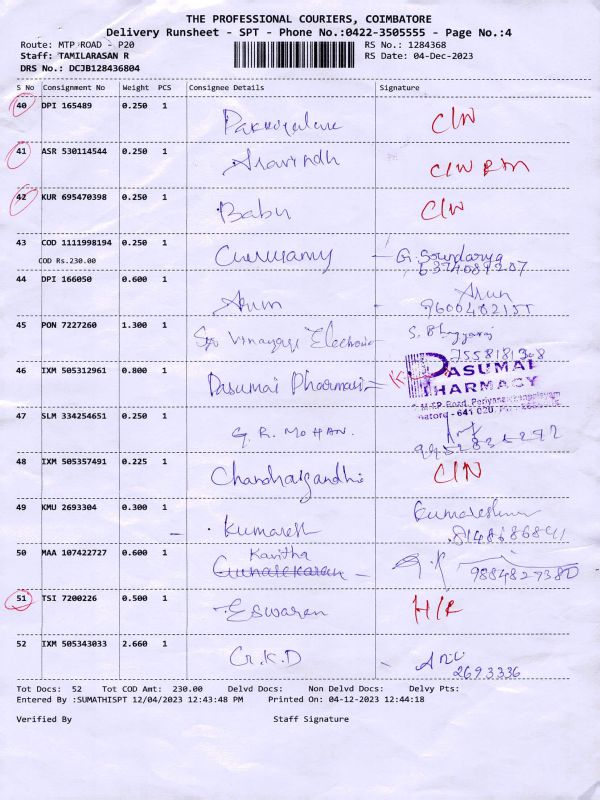 THE PROFESSIONAL COURIERS, COIMBATORE
Delivery Runsheet - SPT - Phone No.:0422-3505555 - Page No.:4
Route: MTP ROAD - P20 RS No.: 1284368
Staff: TAMILARASAN R RS Date: 04-Dec-2023
DRS No.: DCJB128436804
S No Consignment No Weight PCS Consignee Details Signature
40 DPI 165489 0.250 1 C/N
41 ASR 530114544 0.250 1 Aravindh C/N RM
42 KUR 695470398 0.250 1 Babu C/N
43 COD 1111998194 0.250 1 G. Soundarya
COD Rs.230.00
44 DPI 166050 0.600 1 Arun Arun
9600402155
45 PON 7227260 1.300 1 Sri Vinayaga S.
7558181308
46 IXM 505312961 0.800 1 Pasumai Pharmacy PASUMAI
PHARMACY
47 SLM 334254651 0.250 1 G. R. MOHAN.
9952835292
48 IXM 505357491 0.225 1 Chandragandhi C/N
49 KMU 2693304 0.300 1 Kumaresh Kumareshan
8148686841
50 MAA 107422727 0.600 1 Kavitha
9884827380
51 TSI 7200226 0.500 1 Eswaran H/R
52 IXM 505343033 2.660 1 G.K.D
2693336
Tot Docs: 52 Tot COD Amt: 230.00 Delvd Docs: Non Delvd Docs: Delvy Pts:
Entered By :SUMATHISPT 12/04/2023 12:43:48 PM Printed On: 04-12-2023 12:44:18
Verified By Staff Signature